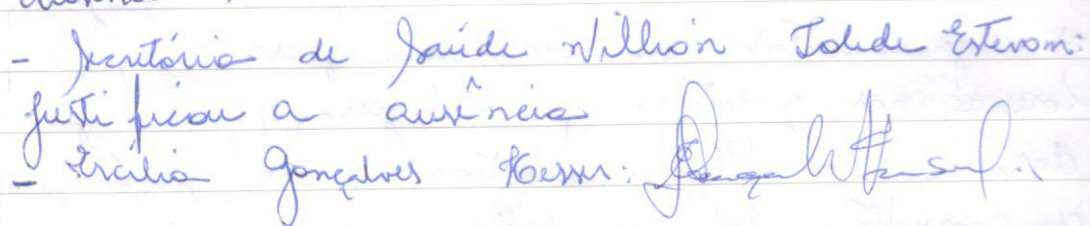 - Secretário de Saúde Willian Toledo Estevam:
justificou a ausência
- Ercília Gonçalves Hesser: